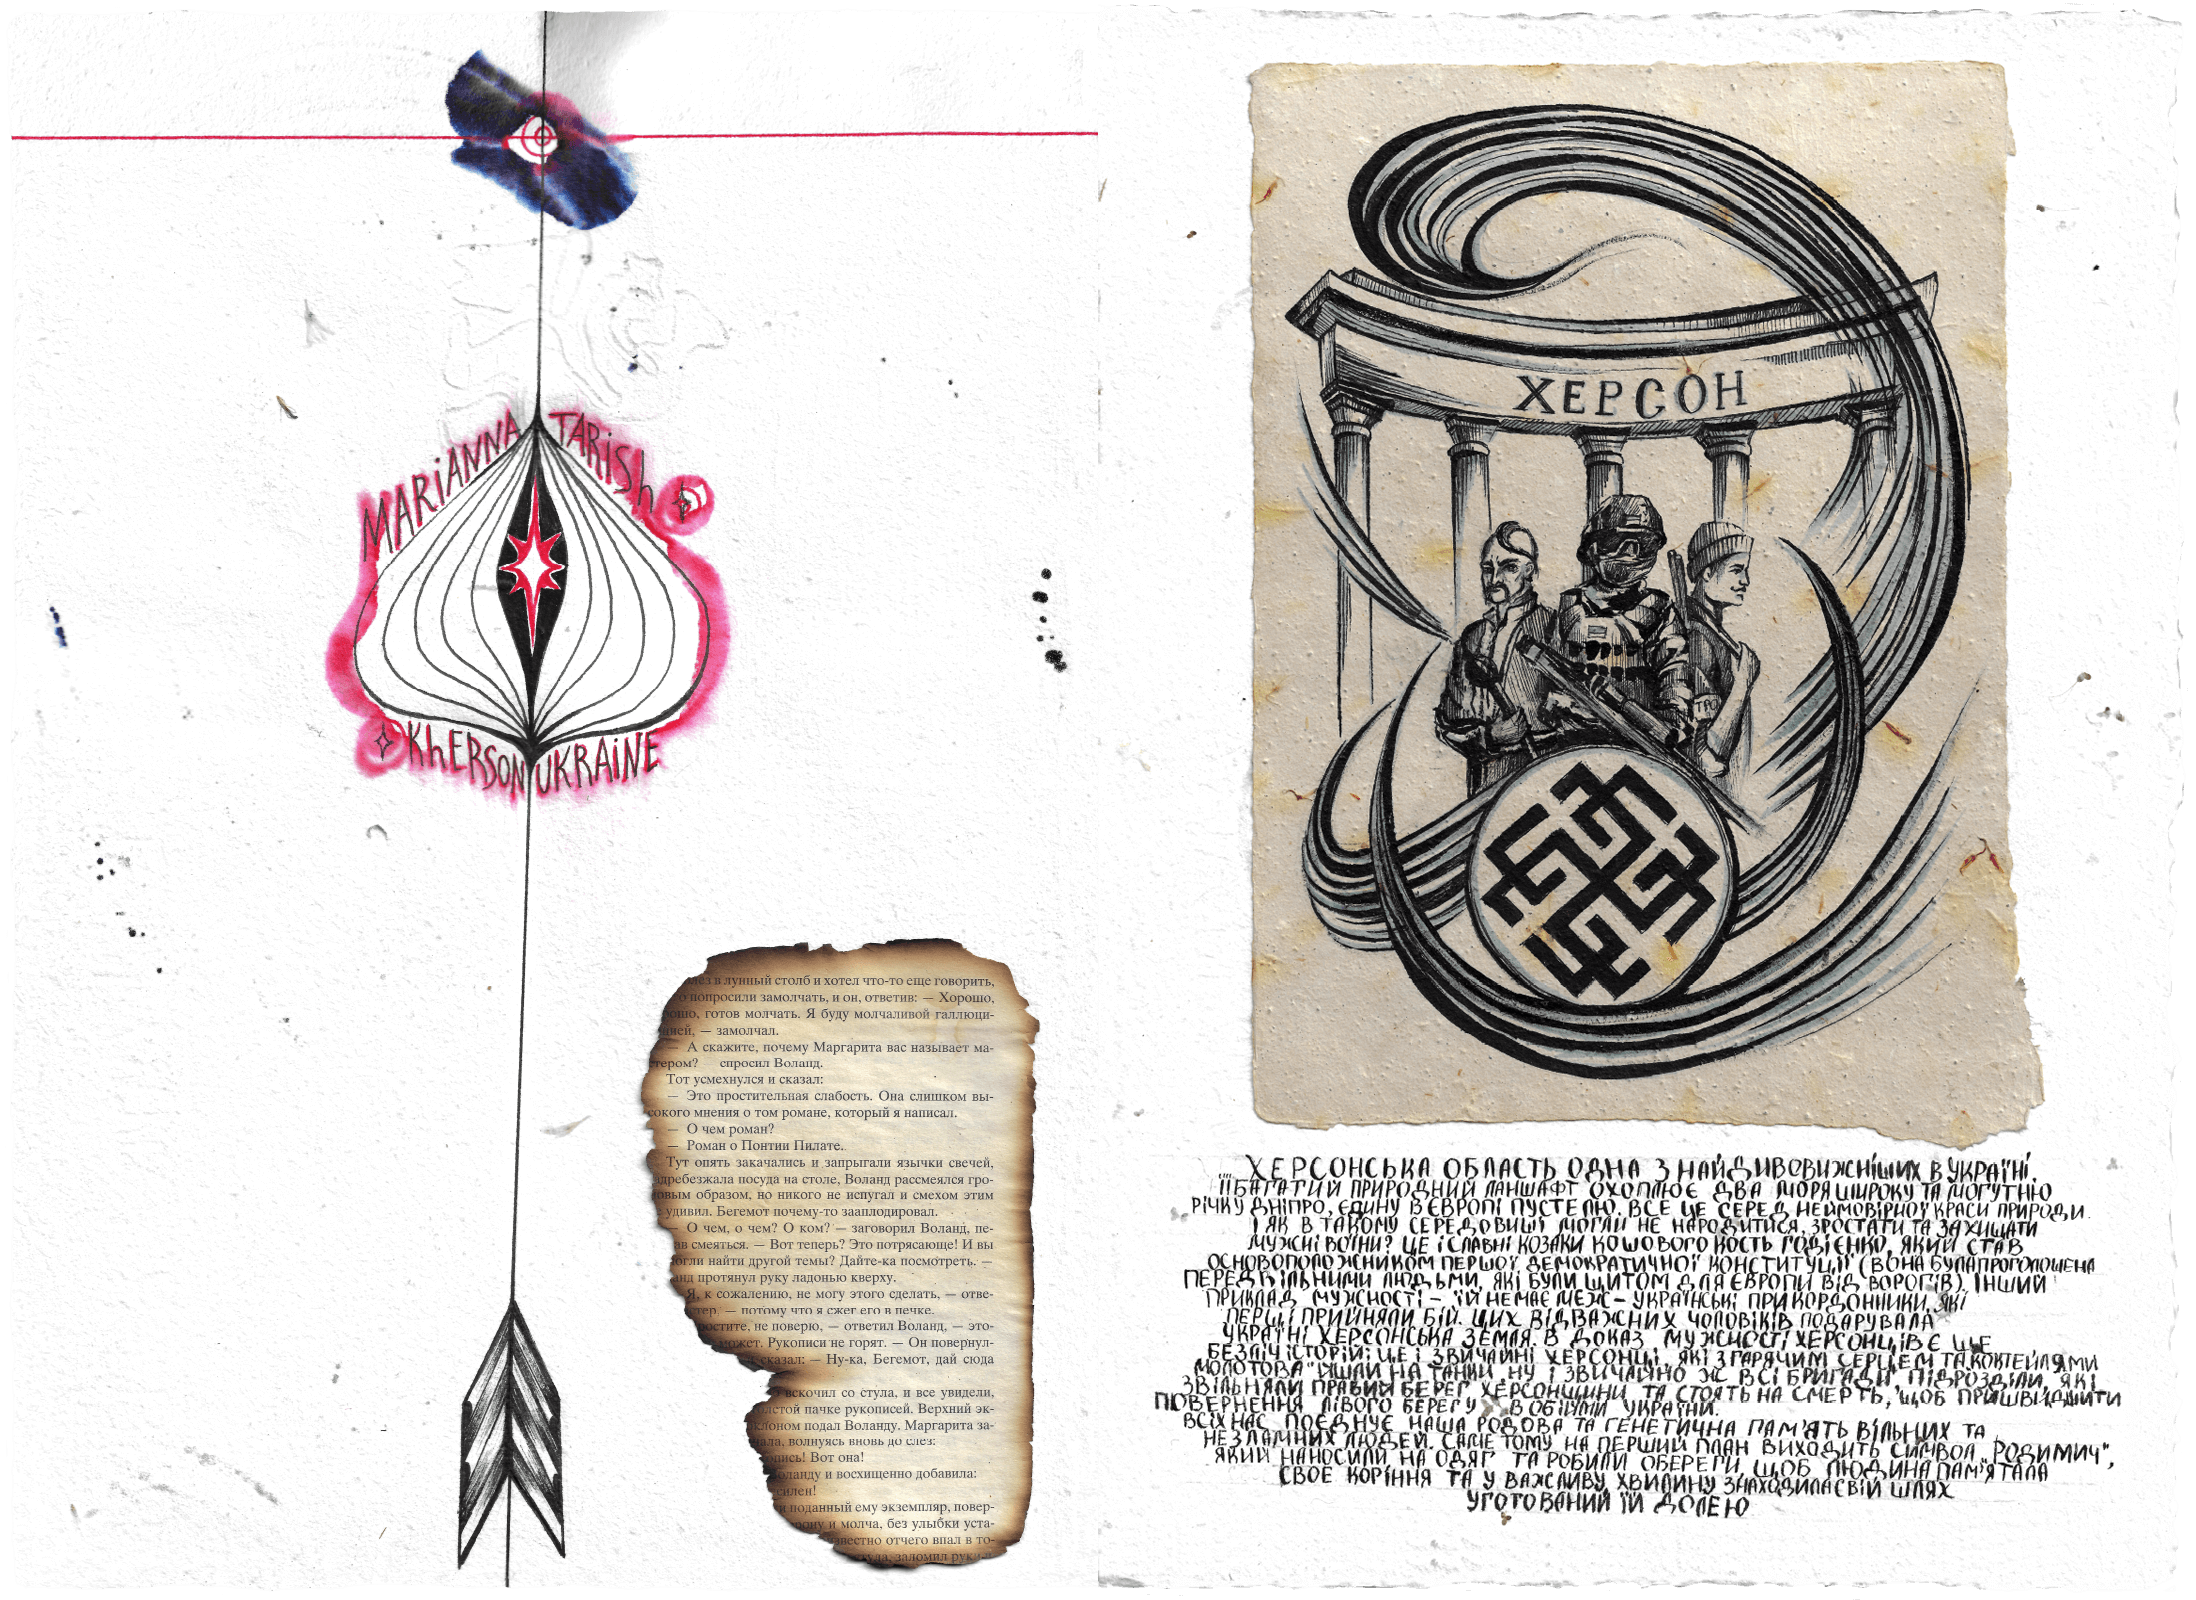 MARIANNA TARISH
KHERSON UKRAINE
в лунный столб и хотел что-то еще говорить,
попросили замолчать, и он, ответив: — Хорошо,
готов молчать. Я буду молчаливой галлюци-
— замолчал.
— А скажите, почему Маргарита вас называет ма-
спросил Воланд.
Тот усмехнулся и сказал:
— Это простительная слабость. Она слишком вы-
сокого мнения о том романе, который я написал.
— О чем роман?
— Роман о Понтии Пилате.
Тут опять закачались и запрыгали язычки свечей,
посуда на столе, Воланд рассмеялся гро-
образом, но никого не испугал и смехом этим
удивил. Бегемот почему-то зааплодировал.
— О чем, о чем? О ком? — заговорил Воланд, пе-
смеяться. — Вот теперь? Это потрясающе! И вы
найти другой темы? Дайте-ка посмотреть. —
протянул руку ладонью кверху.
Я, к сожалению, не могу этого сделать, — отве-
— потому что я сжег его в печке.
не поверю, — ответил Воланд, — это-
может. Рукописи не горят. — Он повернул-
сказал: — Ну-ка, Бегемот, дай сюда
вскочил со стула, и все увидели,
пачке рукописей. Верхний эк-
подал Воланду. Маргарита за-
волнуясь вновь до слез:
Вот она!
и восхищенно добавила:
поданный ему экземпляр, повер-
и молча, без улыбки уста-
отчего впал в то-
заломил руки
ХЕРСОН
ТРО
ХЕРСОНСЬКА ОБЛАСТЬ ОДНА З НАЙДИВОВИЖНІШИХ В УКРАЇНІ.
ЇЇ БАГАТИЙ ПРИРОДНИЙ ЛАНШАФТ ОХОПЛЮЄ ДВА МОРЯ ШИРОКУ ТА МОГУТНЮ
РІЧКУ ДНІПРО, ЄДИНУ В ЄВРОПІ ПУСТЕЛЮ. ВСЕ ЦЕ СЕРЕД НЕЙМОВІРНОЇ КРАСИ ПРИРОДИ.
І ЯК В ТАКОМУ СЕРЕДОВИЩІ МОГЛИ НЕ НАРОДИТИСЯ, ЗРОСТАТИ ТА ЗАХИЩАТИ
МУЖНІ ВОЇНИ? ЦЕ І СЛАВНІ КОЗАКИ КОШОВОГО КОСТЬ ГОДІЄНКО, ЯКИЙ СТАВ
ОСНОВОПОЛОЖНИКОМ ПЕРШОЇ ДЕМОКРАТИЧНОЇ КОНСТИТУЦІЇ (ВОНА БУЛА ПРОГОЛОШЕНА
ПЕРЕД ВІЛЬНИМИ ЛЮДЬМИ, ЯКІ БУЛИ ЩИТОМ ДЛЯ ЄВРОПИ ВІД ВОРОГІВ). ІНШИЙ
ПРИКЛАД МУЖНОСТІ – ЇЙ НЕМАЄ МЕЖ – УКРАЇНСЬКІ ПРИКОРДОННИКИ, ЯКІ
ПЕРШІ ПРИЙНЯЛИ БІЙ. ЦИХ ВІДВАЖНИХ ЧОЛОВІКІВ ПОДАРУВАЛА
УКРАЇНІ ХЕРСОНСЬКА ЗЕМЛЯ. В ДОКАЗ МУЖНОСТІ ХЕРСОНЦІВ Є ЩЕ
БЕЗЛІЧ ІСТОРІЙ: ЦЕ І ЗВИЧАЙНІ ХЕРСОНЦІ, ЯКІ З ГАРЯЧИМ СЕРЦЕМ ТА КОКТЕЙЛЯМИ
"МОЛОТОВА" ЙШЛИ НА ТАНКИ, НУ І ЗВИЧАЙНО Ж ВСІ БРИГАДИ, ПІДРОЗДІЛИ, ЯКІ
ЗВІЛЬНЯЛИ ПРАВИЙ БЕРЕГ ХЕРСОНЩИНИ ТА СТОЯТЬ НА СМЕРТЬ, ЩОБ ПРИШВИДШИТИ
ПОВЕРНЕННЯ ЛІВОГО БЕРЕГУ В ОБІЙМИ УКРАЇНИ.
ВСІХ НАС ПОЄДНУЄ НАША РОДОВА ТА ГЕНЕТИЧНА ПАМ'ЯТЬ ВІЛЬНИХ ТА
НЕЗЛАМНИХ ЛЮДЕЙ. САМЕ ТОМУ НА ПЕРШИЙ ПЛАН ВИХОДИТЬ СИМВОЛ "РОДИМИЧ",
ЯКИЙ НАНОСИЛИ НА ОДЯГ ТА РОБИЛИ ОБЕРЕГИ, ЩОБ ЛЮДИНА ПАМ'ЯТАЛА
СВОЄ КОРІННЯ ТА У ВАЖЛИВУ ХВИЛИНУ ЗНАХОДИЛА СВІЙ ШЛЯХ
УГОТОВАНИЙ ЇЙ ДОЛЕЮ